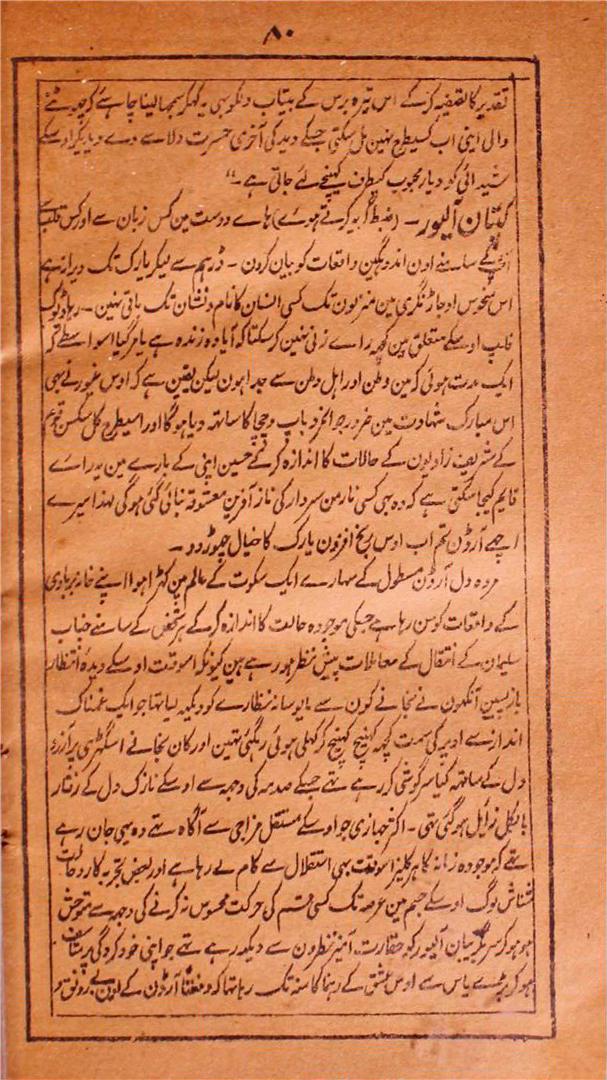 ۸۰
تقدیر کا تصفیہ کر کے اس تیرہ برس کے بیتاب دنکو بہی یہ کہکر سمجہا لینا چاہئے کہ چہوٹنے
والی اینی اب کسیطرح نہین مل سکتی جسکے دید کی آخری حسرت دلاسے دے دیا دیکر اوسکے
شیدائی کو دیار محبوب کیطرف کہینچے لئے جاتی ہے ۔"
کپتان آلیور ۔ (ضبط گریہ کرتے ہوئے) ہاے دوست مین کس زبان سے اور کس قلب سے
آپکے سامنے اون اندوہگین واقعات کو بیان کرون ۔ ڈرہم سے لیکر یارک تک ویرانہ ہے
اس منحوس اوجاڑ نگری مین منزلون تک کسی انسان کا نام و نشان تک باقی نہین ۔ رہا ڈیوک
فلپ اوسکے متعلق مین کچہہ راے زنی نہین کر سکتا کہ آیا وہ زندہ ہے یا مر گیا اسواسطے کہ
ایک مدت ہوئی کہ مین وطن اور اہل وطن سے جدا ہون لیکن یقین ہے کہ اوس غیور نے بہی
اس مبارک شہادت مین ضرور جوانمرد باپ و چچا کا ساتہہ دیا ہوگا اور اسیطرح کل سکسن قوم
کے شریف زادیون کے حالات کا اندازہ کرتے حسین اینی کے بارے مین یہ راے
قایم کیجا سکتی ہے کہ وہ بہی کسی نارمن سردار کی ناز آفرین معشوقہ بنائی گئی ہوگی لہذا میرے
اچہے آرڈن تم اب اوس رنج افزون یارک کا خیال چہوڑ دو ۔
مردہ دل آرڈن مسطول کے سہارے ایک سکوت کے عالم مین کہڑا ہوا اپنے خانہ بربادی
کے واقعات کو سن رہا ہے جسکی موجودہ حالت کا اندازہ کر کے ہر شخص کے سامنے جناب
سلیمان کے انتقال کے معاملات پیش نظر ہو رہے ہین کیونکہ اسوقت اوسکے دیدۂ انتظار
بازپسین آنکہون نے نجانے کون سے مایوسانہ نظارے کو دیکہہ لیا تہا جو ایک غمناک
انداز سے اوپر کی سمت کچہہ کہنچ کہنچ کر کہلی ہوئی رہگئی تہین اور کان نجانے اسگہڑی پر آزردہ
دل کے ساتہہ کیا سرگوشی کر رہے تہے جسکے صدمہ کی وجہ سے اوسکے نازک دل کے رفتار
بالکل زایل ہو گئی تہی ۔ اکثر جہازی جو اوسکے مستقل مزاجی سے آگاہ تہے وہ یہی جان رہے
تہے کہ موجودہ زمانہ کا ہرکلیز اسوقت بہی استقلال سے کام لے رہا ہے اور بعض تجربہ کار و حالت
شناس لوگ اوسکے جسم مین عرصہ تک کسی قسم کی حرکت محسوس نہ کرنے کی وجہ سے متوحش
ہو ہو کر سر بگریبان آلیور کو حقارت آمیز نظرون سے دیکہہ رہے تہے جو اپنی خود کردگی پر متاسف
ہو کر بڑے یاس سے اوس عشق کے رہنما کا منہ تک رہا تہا کہ دفعتاً آرڈن کے اون بے رونق و